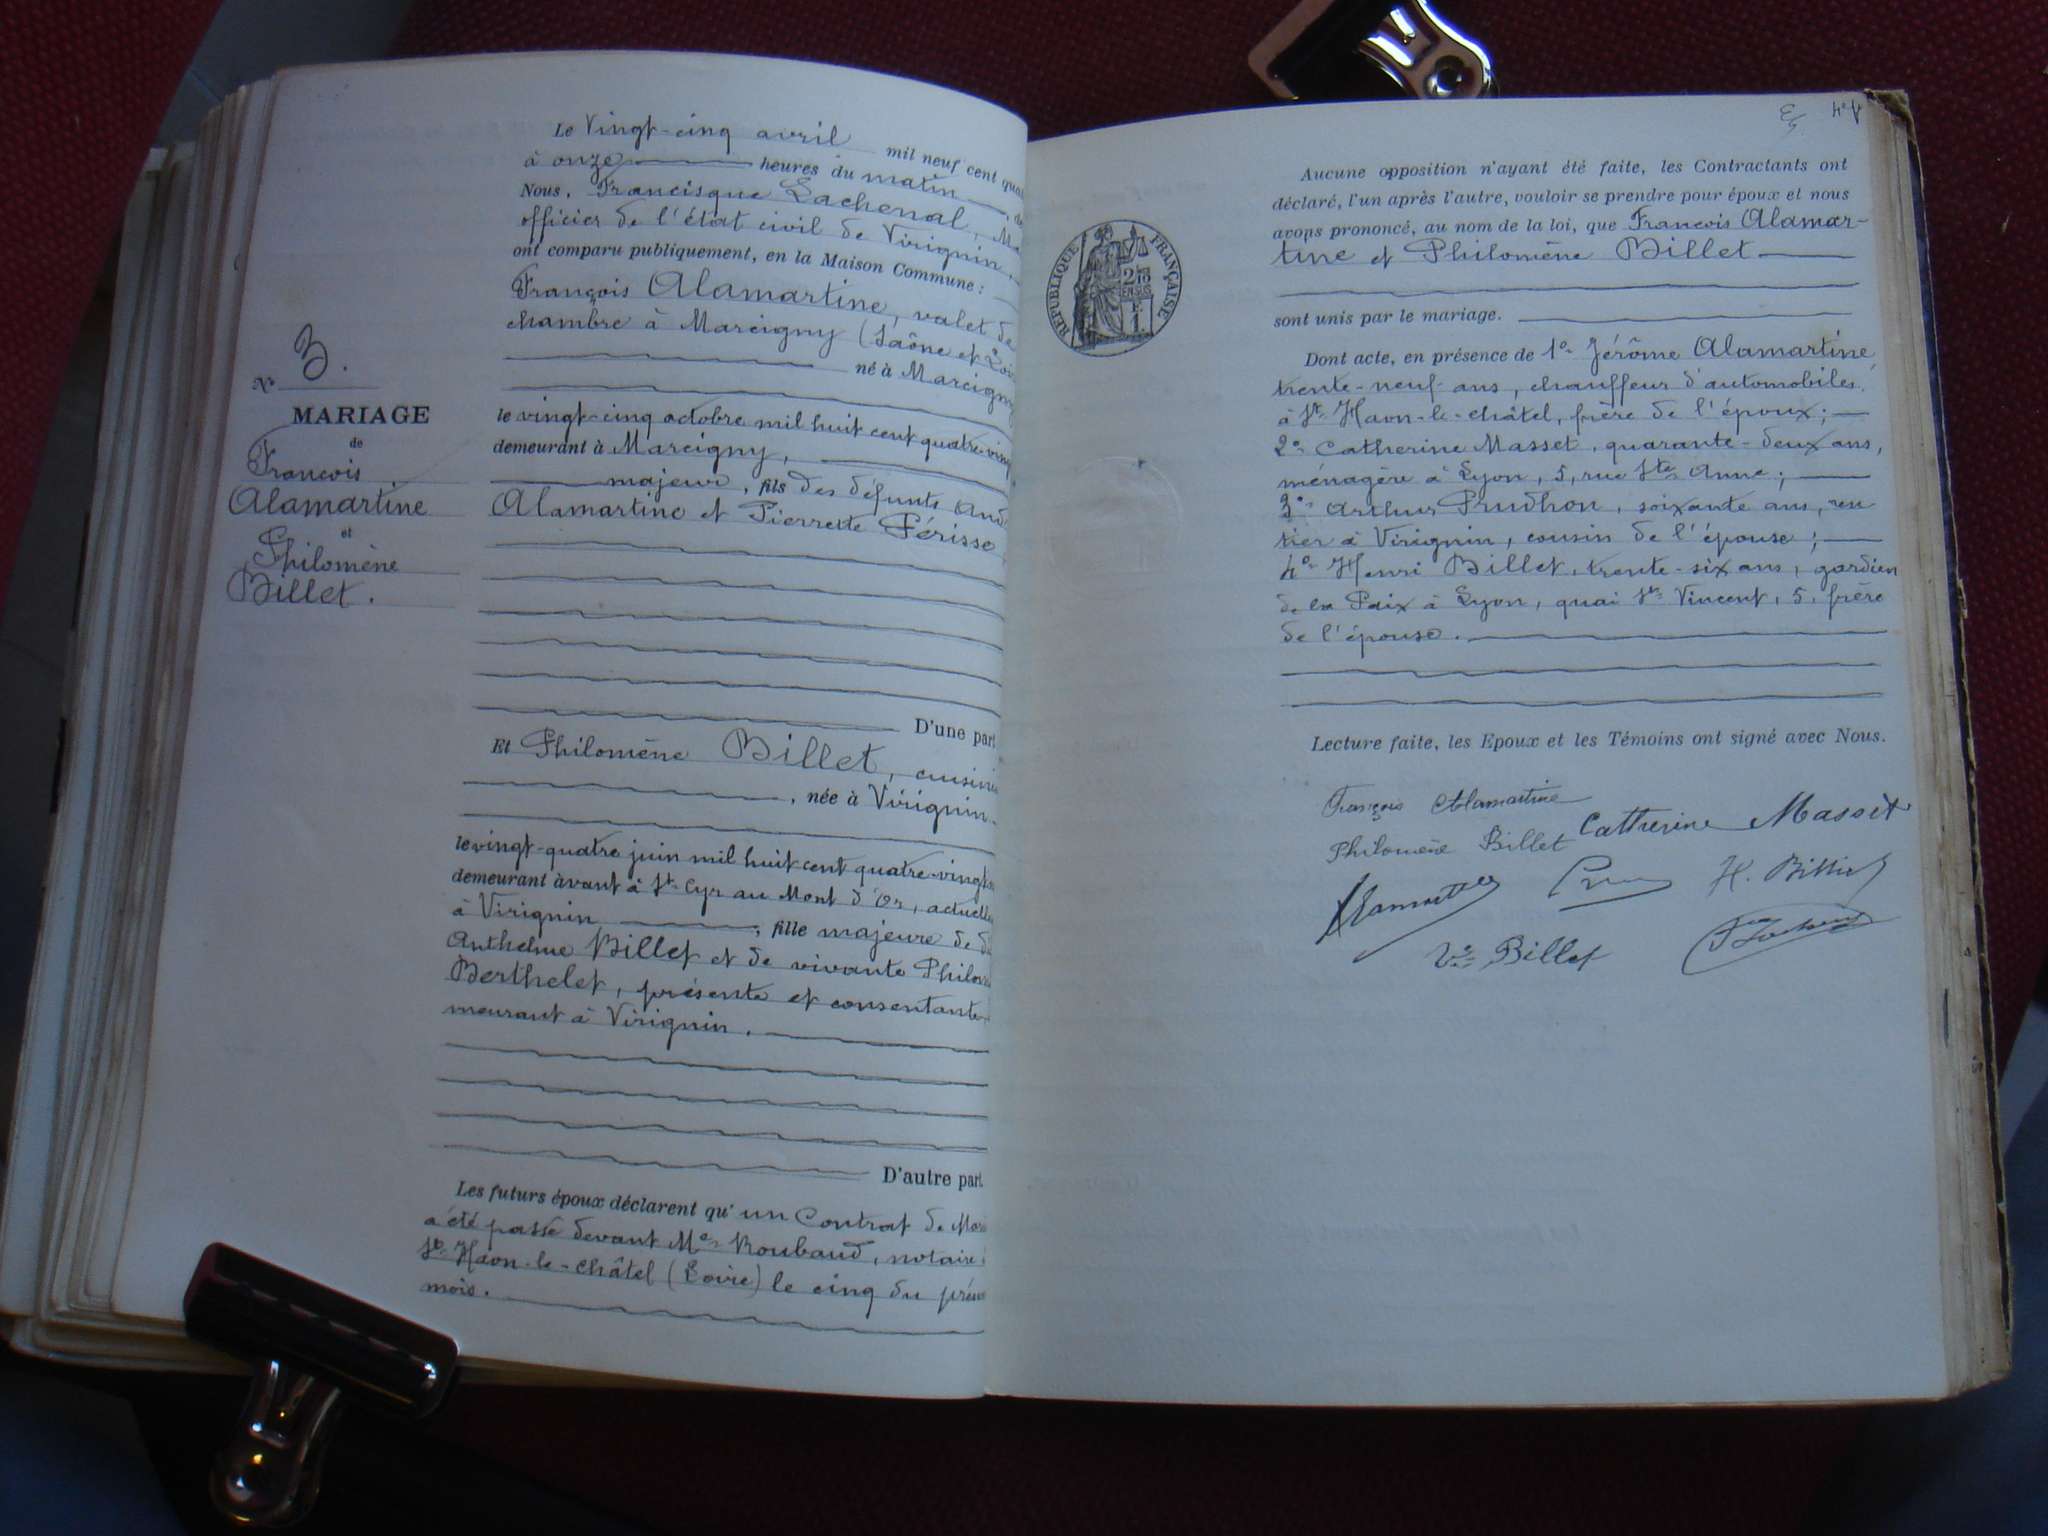 Nº 3.
MARIAGE
de
François
Alamartine
et
Philomène
Billet.
Le Vingt-cinq avril mil neuf cent
à onze heures du matin
Nous, Francisque Lachenal,
officier de l'état civil de Virignin,
ont comparu publiquement, en la Maison Commune :
François Alamartine, valet de
chambre à Marcigny (Saône et
né à Marcigny
le vingt-cinq octobre mil huit cent quatre-
demeurant à Marcigny,
majeur, fils des défunts
Alamartine et Pierrette Férisse
D'une part
Et Philomène Billet,
, née à Virignin
le vingt-quatre juin mil huit cent quatre-vingt
demeurant avant à St Cyr au Mont d'Or,
à Virignin, fille majeure de
Anthelme Billet et de vivante
Berthelet, présente et consentante
meurant à Virignin.
D'autre part
Les futurs époux déclarent qu'un Contrat de
a été passé devant Me Roubaud, notaire
St Haon-le-châtel (Loire) le cinq du
mois.
RÉPUBLIQUE FRANÇAISE
Aucune opposition n'ayant été faite, les Contractants ont
déclaré, l'un après l'autre, vouloir se prendre pour époux et nous
avons prononcé, au nom de la loi, que François Alamar-
tine et Philomène Billet
sont unis par le mariage.
Dont acte, en présence de 1º Jérôme Alamartine
trente-neuf ans, chauffeur d'automobiles
à St Haon-le-châtel, frère de l'époux;
2º Catherine Masset, quarante-deux ans,
ménagère à Lyon, 5, rue Ste Anne;
3º Arthur Prudhon, soixante ans, ren
tier à Virignin, cousin de l'épouse;
4º Henri Billet, trente-six ans, gardien
de la Paix à Lyon, quai St Vincent, 5, frère
de l'épouse.
Lecture faite, les Epoux et les Témoins ont signé avec Nous.
François Alamartine
Catherine Masset
Philomène Billet
H. Billet
Ve Billet